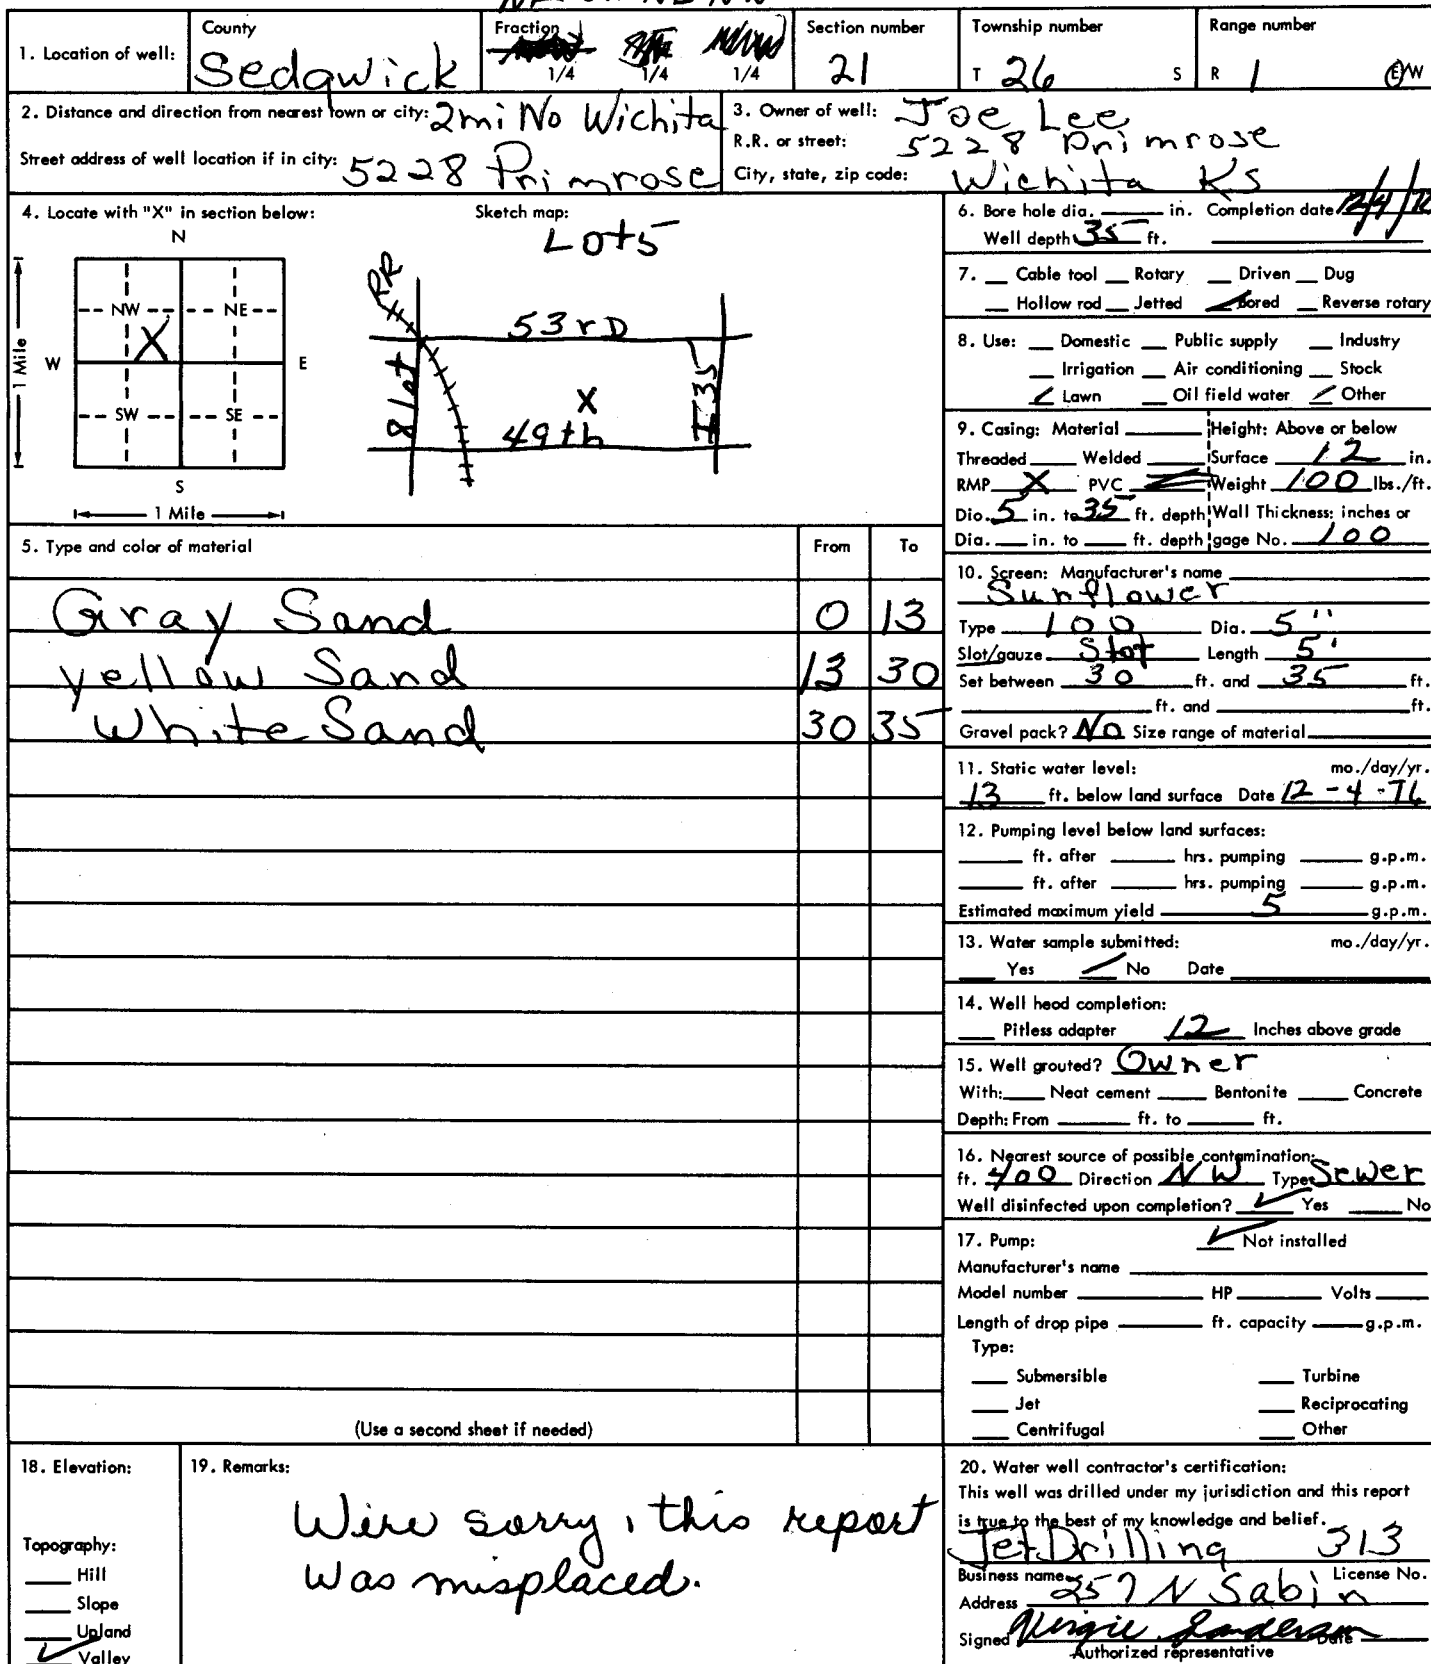 1. Location of well:
County
Sedgwick
Fraction
1/4 1/4 1/4
Section number
21
Township number
T 26 S
Range number
R 1 E/W
2. Distance and direction from nearest town or city: 2mi No Wichita
Street address of well location if in city: 5228 Primrose
3. Owner of well: Joe Lee
R.R. or street: 5228 Primrose
City, state, zip code: Wichita Ks
4. Locate with "X" in section below:
N
NW NE
X
W E
SW SE
S
1 Mile
1 Mile
Sketch map:
Lot5
RR
53rD
X
I35
49th
6. Bore hole dia. ____ in. Completion date
Well depth 35 ft.
7. __ Cable tool __ Rotary __ Driven __ Dug
__ Hollow rod __ Jetted ✓ Bored __ Reverse rotary
8. Use: __ Domestic __ Public supply __ Industry
__ Irrigation __ Air conditioning __ Stock
✓ Lawn __ Oil field water ✓ Other
9. Casing: Material ____ Height: Above or below
Threaded ____ Welded ____ Surface 12 in.
RMP X PVC ____ Weight 100 lbs./ft.
Dia. 5 in. to 35 ft. depth Wall Thickness: inches or
Dia. ___ in. to ___ ft. depth gage No. 100
5. Type and color of material From To
Gray Sand 0 13
yellow Sand 13 30
White Sand 30 35
10. Screen: Manufacturer's name
Sunflower
Type 100 Dia. 5"
Slot/gauze Slot Length 5'
Set between 30 ft. and 35 ft.
____ ft. and ____ ft.
Gravel pack? No Size range of material
11. Static water level: mo./day/yr.
13 ft. below land surface Date 12-4-76
12. Pumping level below land surfaces:
____ ft. after ____ hrs. pumping ____ g.p.m.
____ ft. after ____ hrs. pumping ____ g.p.m.
Estimated maximum yield 5 g.p.m.
13. Water sample submitted: mo./day/yr.
__ Yes ✓ No Date
14. Well head completion:
__ Pitless adapter 12 Inches above grade
15. Well grouted? Owner
With: ___ Neat cement ___ Bentonite ___ Concrete
Depth: From ____ ft. to ____ ft.
16. Nearest source of possible contamination:
ft. 400 Direction NW Type Sewer
Well disinfected upon completion? ✓ Yes ___ No
17. Pump: ✓ Not installed
Manufacturer's name
Model number ____ HP ____ Volts ____
Length of drop pipe ____ ft. capacity ____ g.p.m.
Type:
__ Submersible __ Turbine
__ Jet __ Reciprocating
__ Centrifugal __ Other
(Use a second sheet if needed)
18. Elevation:
Topography:
__ Hill
__ Slope
__ Upland
✓ Valley
19. Remarks:
We're sorry, this report
was misplaced.
20. Water well contractor's certification:
This well was drilled under my jurisdiction and this report
is true to the best of my knowledge and belief.
Jet Drilling 313
Business name License No.
Address 257 N Sabin
Signed Virgie Sanderson Date
Authorized representative